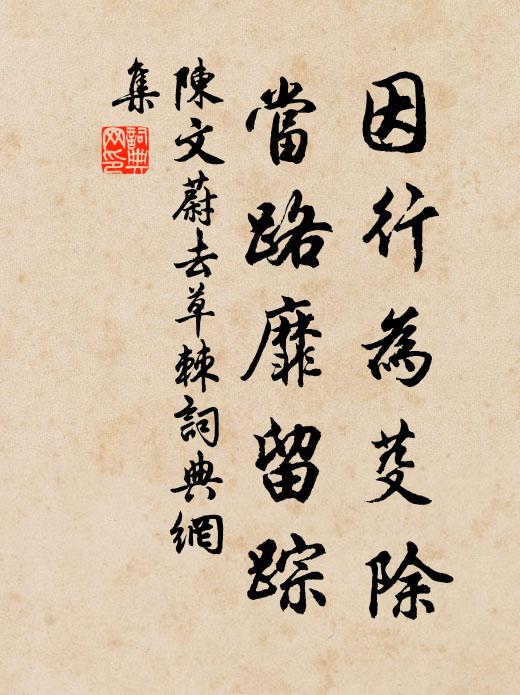 因行為芟除
當路靡留踪
陳文蔚去草棘詞典網
集
詞典網印